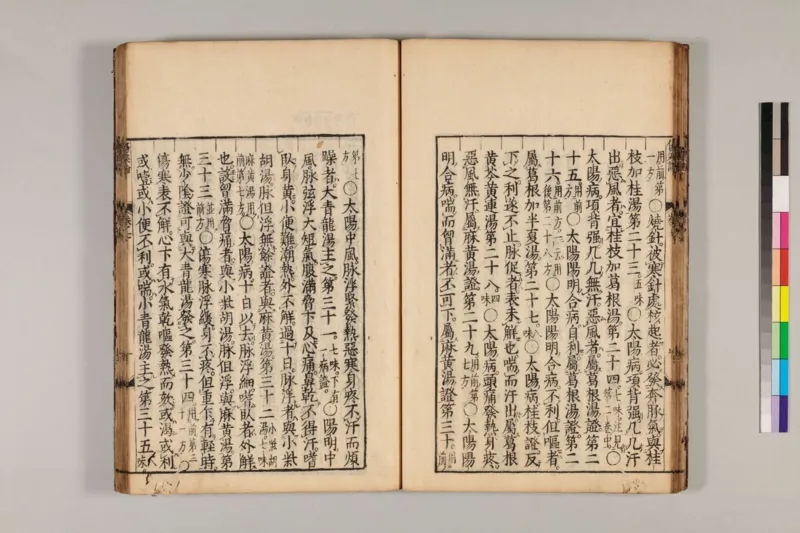 用前第一方○燒針被寒針處核起者必發奔豚氣與桂
枝加桂湯第二十三五味○太陽病項背强几几汗
出惡風者宜桂枝加葛根湯第二十四七味注見第二卷中○
太陽病項背强几几無汗惡風者屬葛根湯證第二
十五用前方○太陽陽明合病自利屬葛根湯證第二
十六用前方一云用後第二十八方○太陽陽明合病不利但嘔者
屬葛根加半夏湯第二十七八味○太陽病桂枝證反
下之利遂不止脉促者表未解也喘而汗出屬葛根
黃芩黃連湯第二十八四味○太陽病頭痛發熱身疼
惡風無汗屬麻黃湯證第二十九用前第七方○太陽陽
明合病喘而胷滿者不可下屬麻黃湯證第三十用前
第七方○太陽中風脉浮緊發熱惡寒身疼不汗而煩
躁者大青龍湯主之第三十一七味下有一病證○陽明中
風脉弦浮大短氣腹滿脅下及心痛鼻乾不得汗嗜
臥身黃小便難潮熱外不解過十日脉浮者與小柴
胡湯脉但浮無餘證者與麻黃湯第三十二小柴胡湯七味麻黃湯用前第七方○太陽病十日以去脉浮細嗜臥者外解
也設胷滿脅痛者與小柴胡湯脉但浮與麻黃湯第
三十三並用前方○傷寒脉浮緩身不疼但重乍有輕時
無少陰證可與大青龍湯發之第三十四用前第三十一方○
傷寒表不解心下有水氣乾嘔發熱而欬或渴或利
或噎或小便不利或喘小青龍湯主之第三十五八味